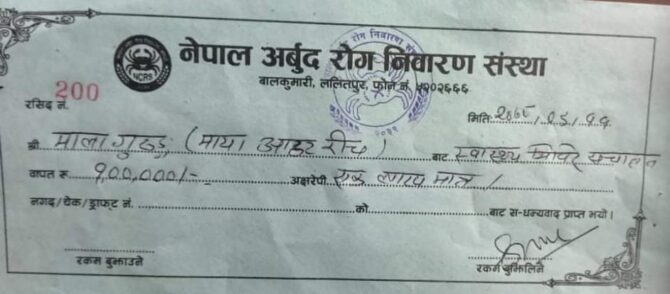 NCRS
नेपाल अर्बुद रोग निवारण संस्था
बालकुमारी, ललितपुर, फोन नं. ५२०२६६६
रसिद नं. 200
मिति:
श्री माला गुरुङ (माया आहर रीच) बाट स्वास्थ्य शिविर सञ्चालन
वापत रू. १००,०००/- अक्षरेपी एक लाख मात्र /
नगद/चेक/ड्राफ्ट नं. को बाट स-धन्यवाद प्राप्त भयो।
रकम बुझाउने
रकम बुझिलिने